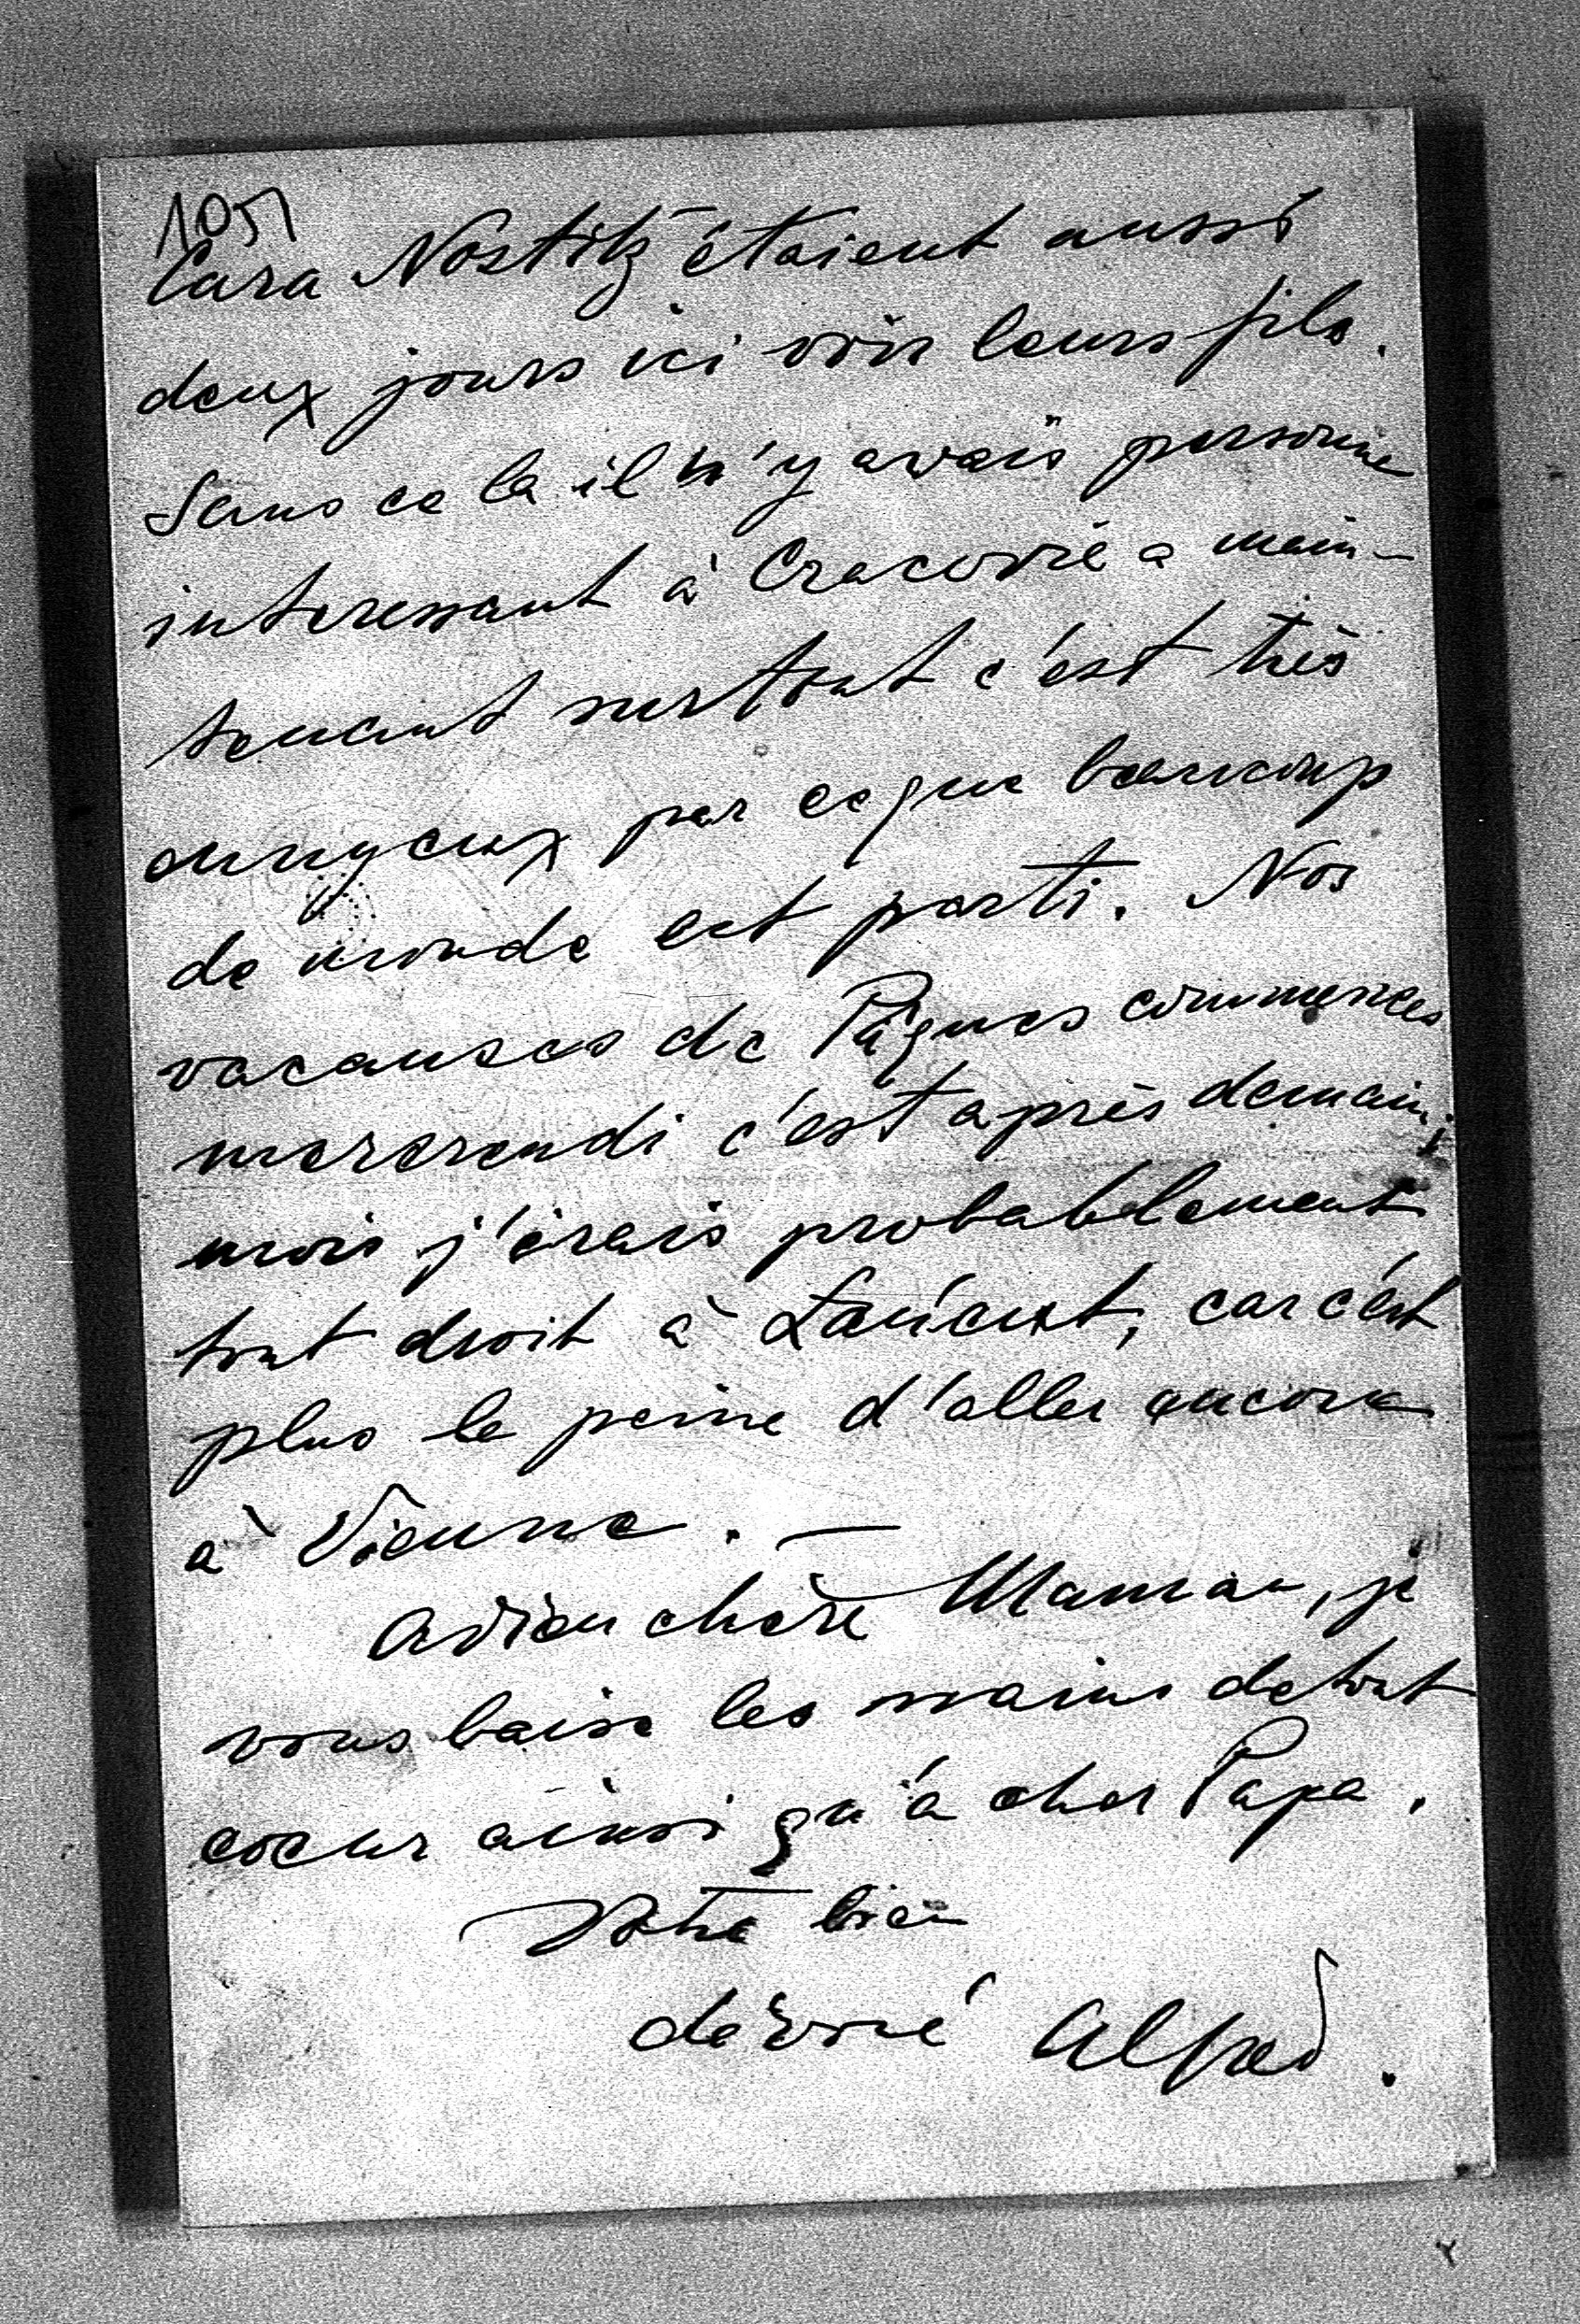 105
Cara Nostitz étaient aussi
deux jours ici voir leurs fils.
Sans ce la il n'y avais personne
interessant à Cracovie a main-
tenant surtout c'est très
ennyeux par ceque beaucoup
de monde est parti. Nos
vacanses de Pâques commences
mercrendi c'est après demain;
mois j'irais probabelement
tout droit à Łańcut, car c'est
plus la peine d'aller encore
à Vienne. —
Adieu chère Maman, je
vous baise les mains de tout
coeur ainsi qu'à cher Papa.
Votre bien
dévoué Alfred.